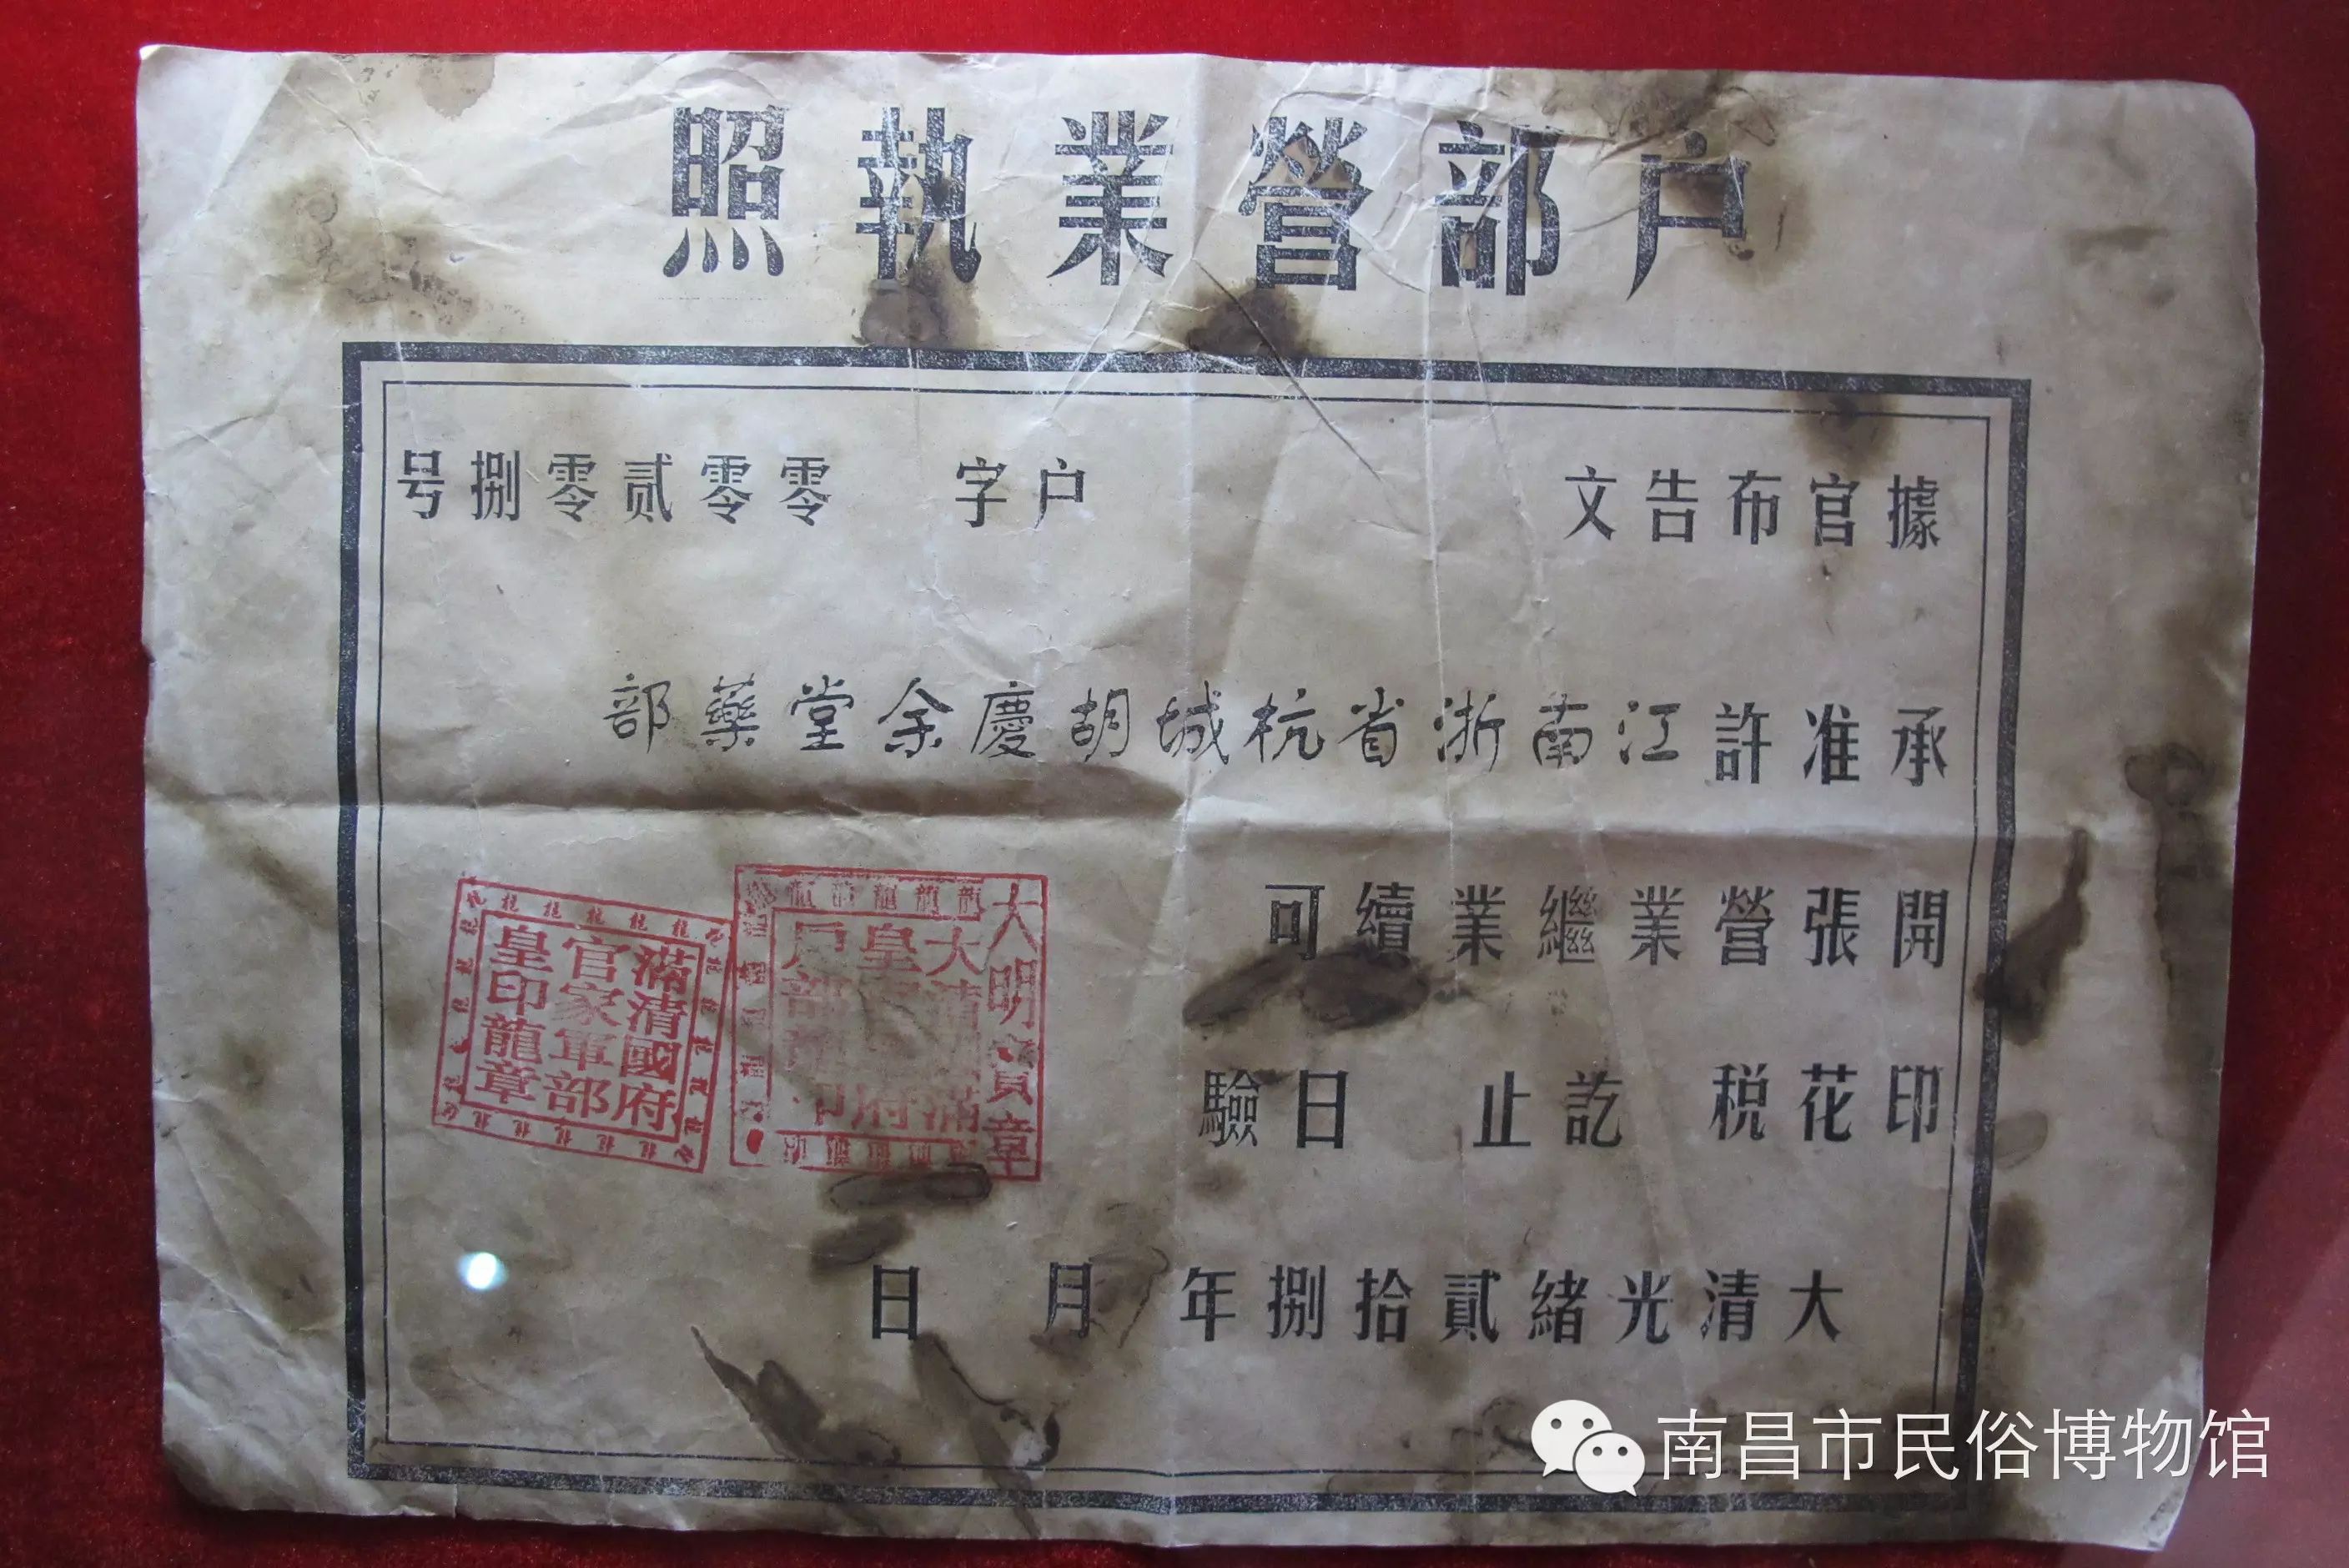 户部營業執照
據官布告文 户字 零零贰零捌号
承准許江南浙省杭城胡慶余堂藥部
開張營業繼業續可
印花税訖止 日驗
大清光緒貳拾捌年 月 日
大明寶章
滿清國府
官家軍部
皇印龍章
南昌市民俗博物馆